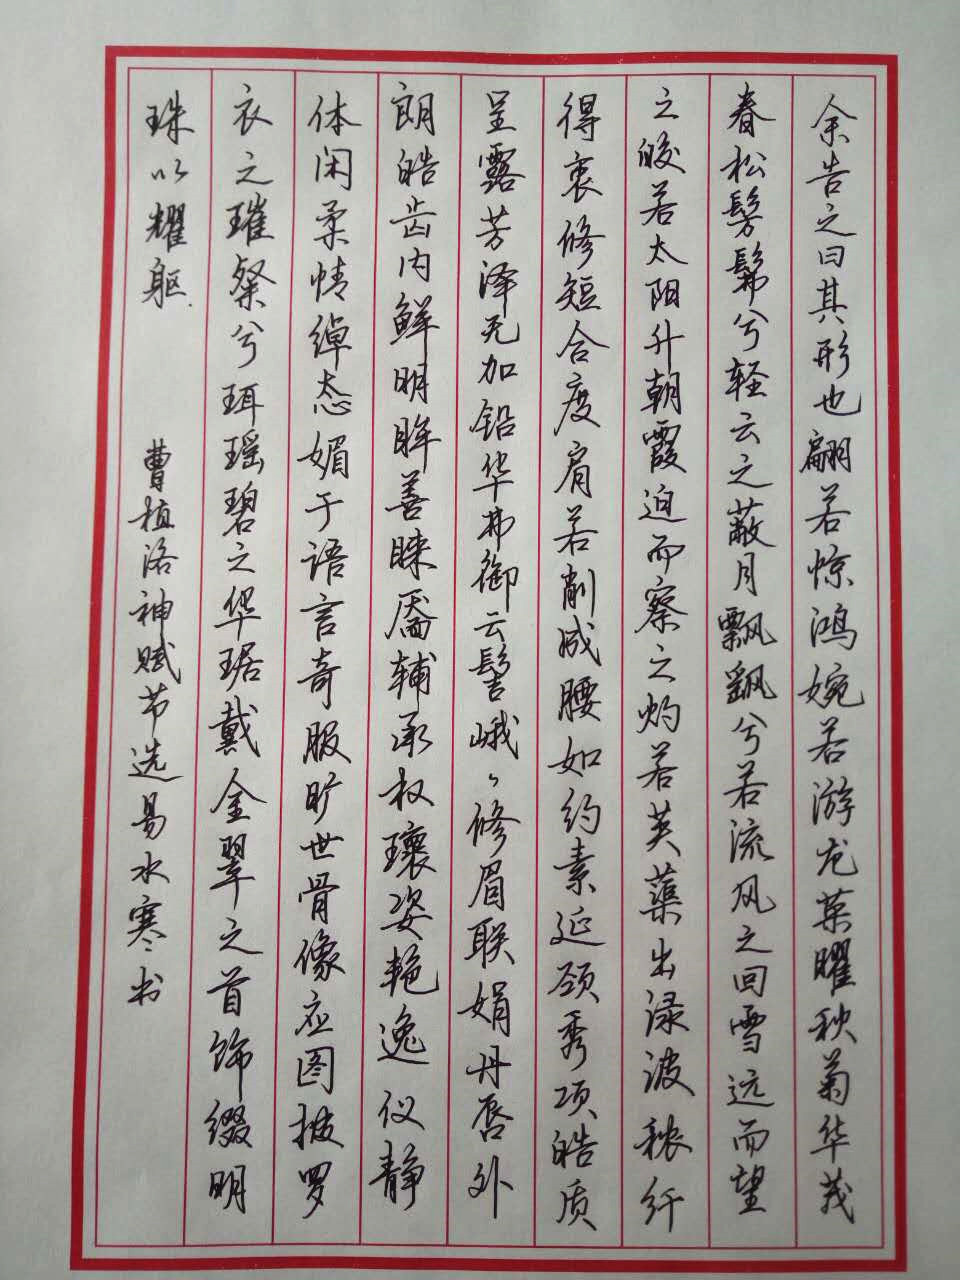 余告之曰其形也翩若惊鸿婉若游龙荣曜秋菊华茂
春松髣髴兮轻云之蔽月飘飖兮若流风之回雪远而望
之皎若太阳升朝霞迫而察之灼若芙蕖出渌波秾纤
得衷修短合度肩若削成腰如约素延颈秀项皓质
呈露芳泽无加铅华弗御云髻峨々修眉联娟丹唇外
朗皓齿内鲜明眸善睐靥辅承权瓌姿艳逸仪静
体闲柔情绰态媚于语言奇服旷世骨像应图披罗
衣之璀粲兮珥瑶碧之华琚戴金翠之首饰缀明
珠以耀躯 曹植洛神赋节选易水寒书